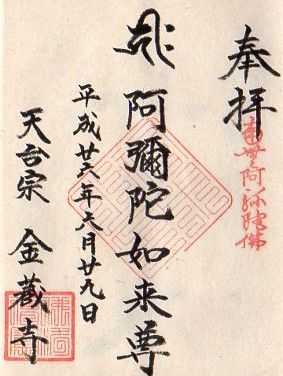 奉拝
阿彌陀如来尊
平成廿六年六月廿九日
天台宗 金蔵寺